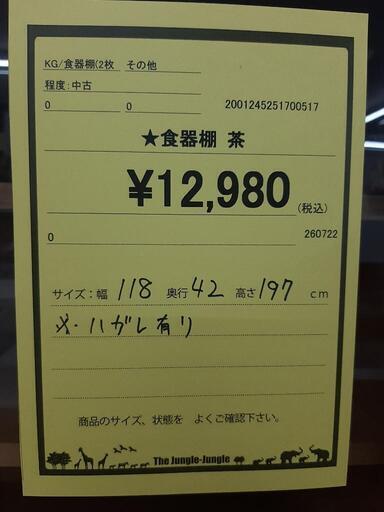 KG/食器棚(2枚 その他
程度:中古
0 0 2001245251700517
★食器棚 茶
¥12,980(税込)
0 260722
サイズ:幅 118 奥行 42 高さ 197 cm
・ハガレ有り
商品のサイズ、状態を よくご確認下さい。
The Jungle-Jungle